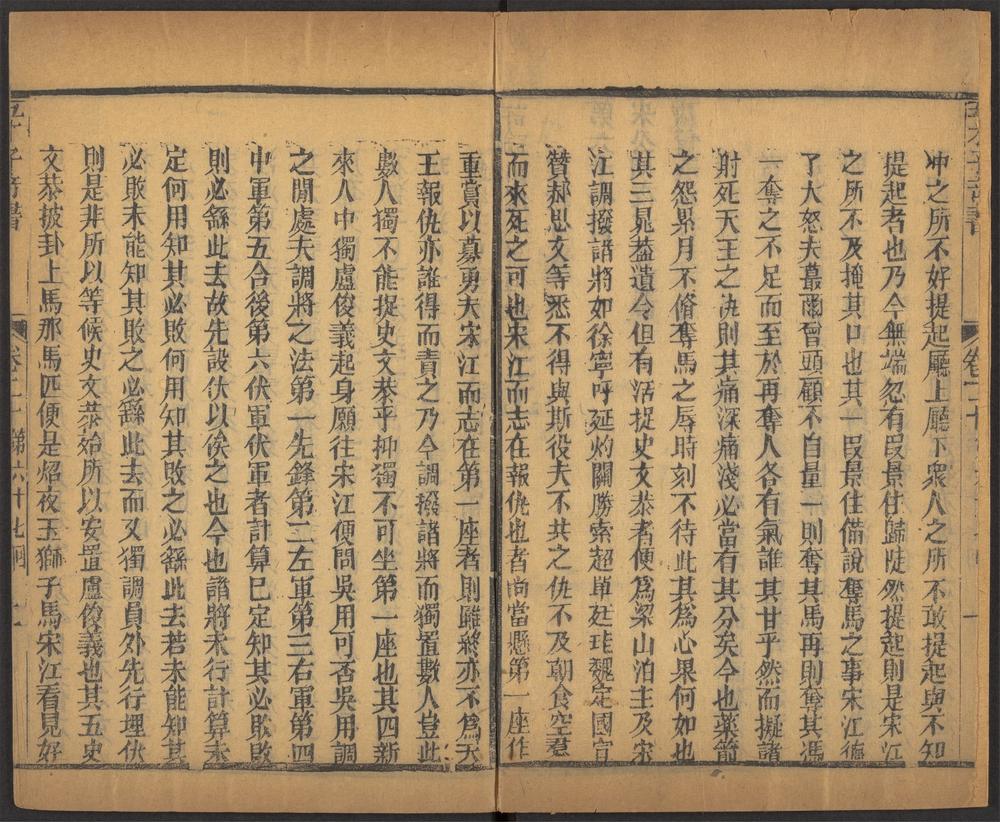 冲之所不好提起廳上廳下衆人之所不敢提起與不知
提起者也乃今無端忽有叚景住歸陡然提起則是宋江
之所不及掩其口也其一叚景住備說奪馬之事宋江德
了大怒夫蕞爾曾頭顧不自量一則奪其馬再則奪其馮
一奪之不足而至於再奪人各有氣誰其甘乎然而擬諸
射死天王之仇則其痛深痛淺必當有其分矣今也藥箭
之怨累月不脩奪馬之辱時刻不待此其爲心果何如也
其三晁蓋遺令但有活捉史文恭者便爲梁山泊主及宋
江調撥諸將如徐寧呼延灼關勝索超單廷珪魏定國宣
贊郝思文等悉不得與斯役夫不共之仇不及朝食空羣
而來死之可也宋江而志在報仇也者尚當懸第一座作
重賞以募勇夫宋江而志在第一座者則雖終亦不爲天
王報仇亦誰得而責之乃今調撥諸將而獨置數人豈此
數人獨不能捉史文恭乎抑獨不可坐第一座也其四新
來人中獨盧俊義起身願往宋江便問吳用可否吳用調
之閒處夫調將之法第一先鋒第二左軍第三右軍第四
中軍第五合後第六伏軍伏軍者計算已定知其必敗敗
則必繇此去故先設伏以俟之也今也諸將未行計算未
定何用知其必敗何用知其敗之必繇此去若未能知其
必敗未能知其敗之必繇此去而又獨調員外先行埋伏
則是非所以等候史文恭始所以安置盧俊義也其五史
文恭披卦上馬那馬匹便是炤夜玉獅子馬宋江看見好
才子奇書
卷二十 第六十七回
一